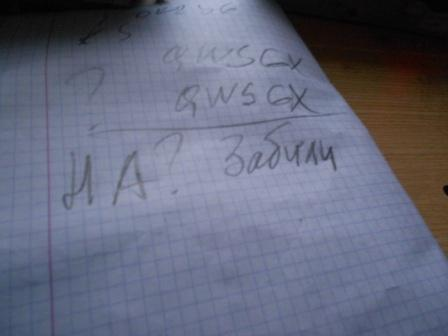 ? QWSGX
QWSGX
НА? Забили